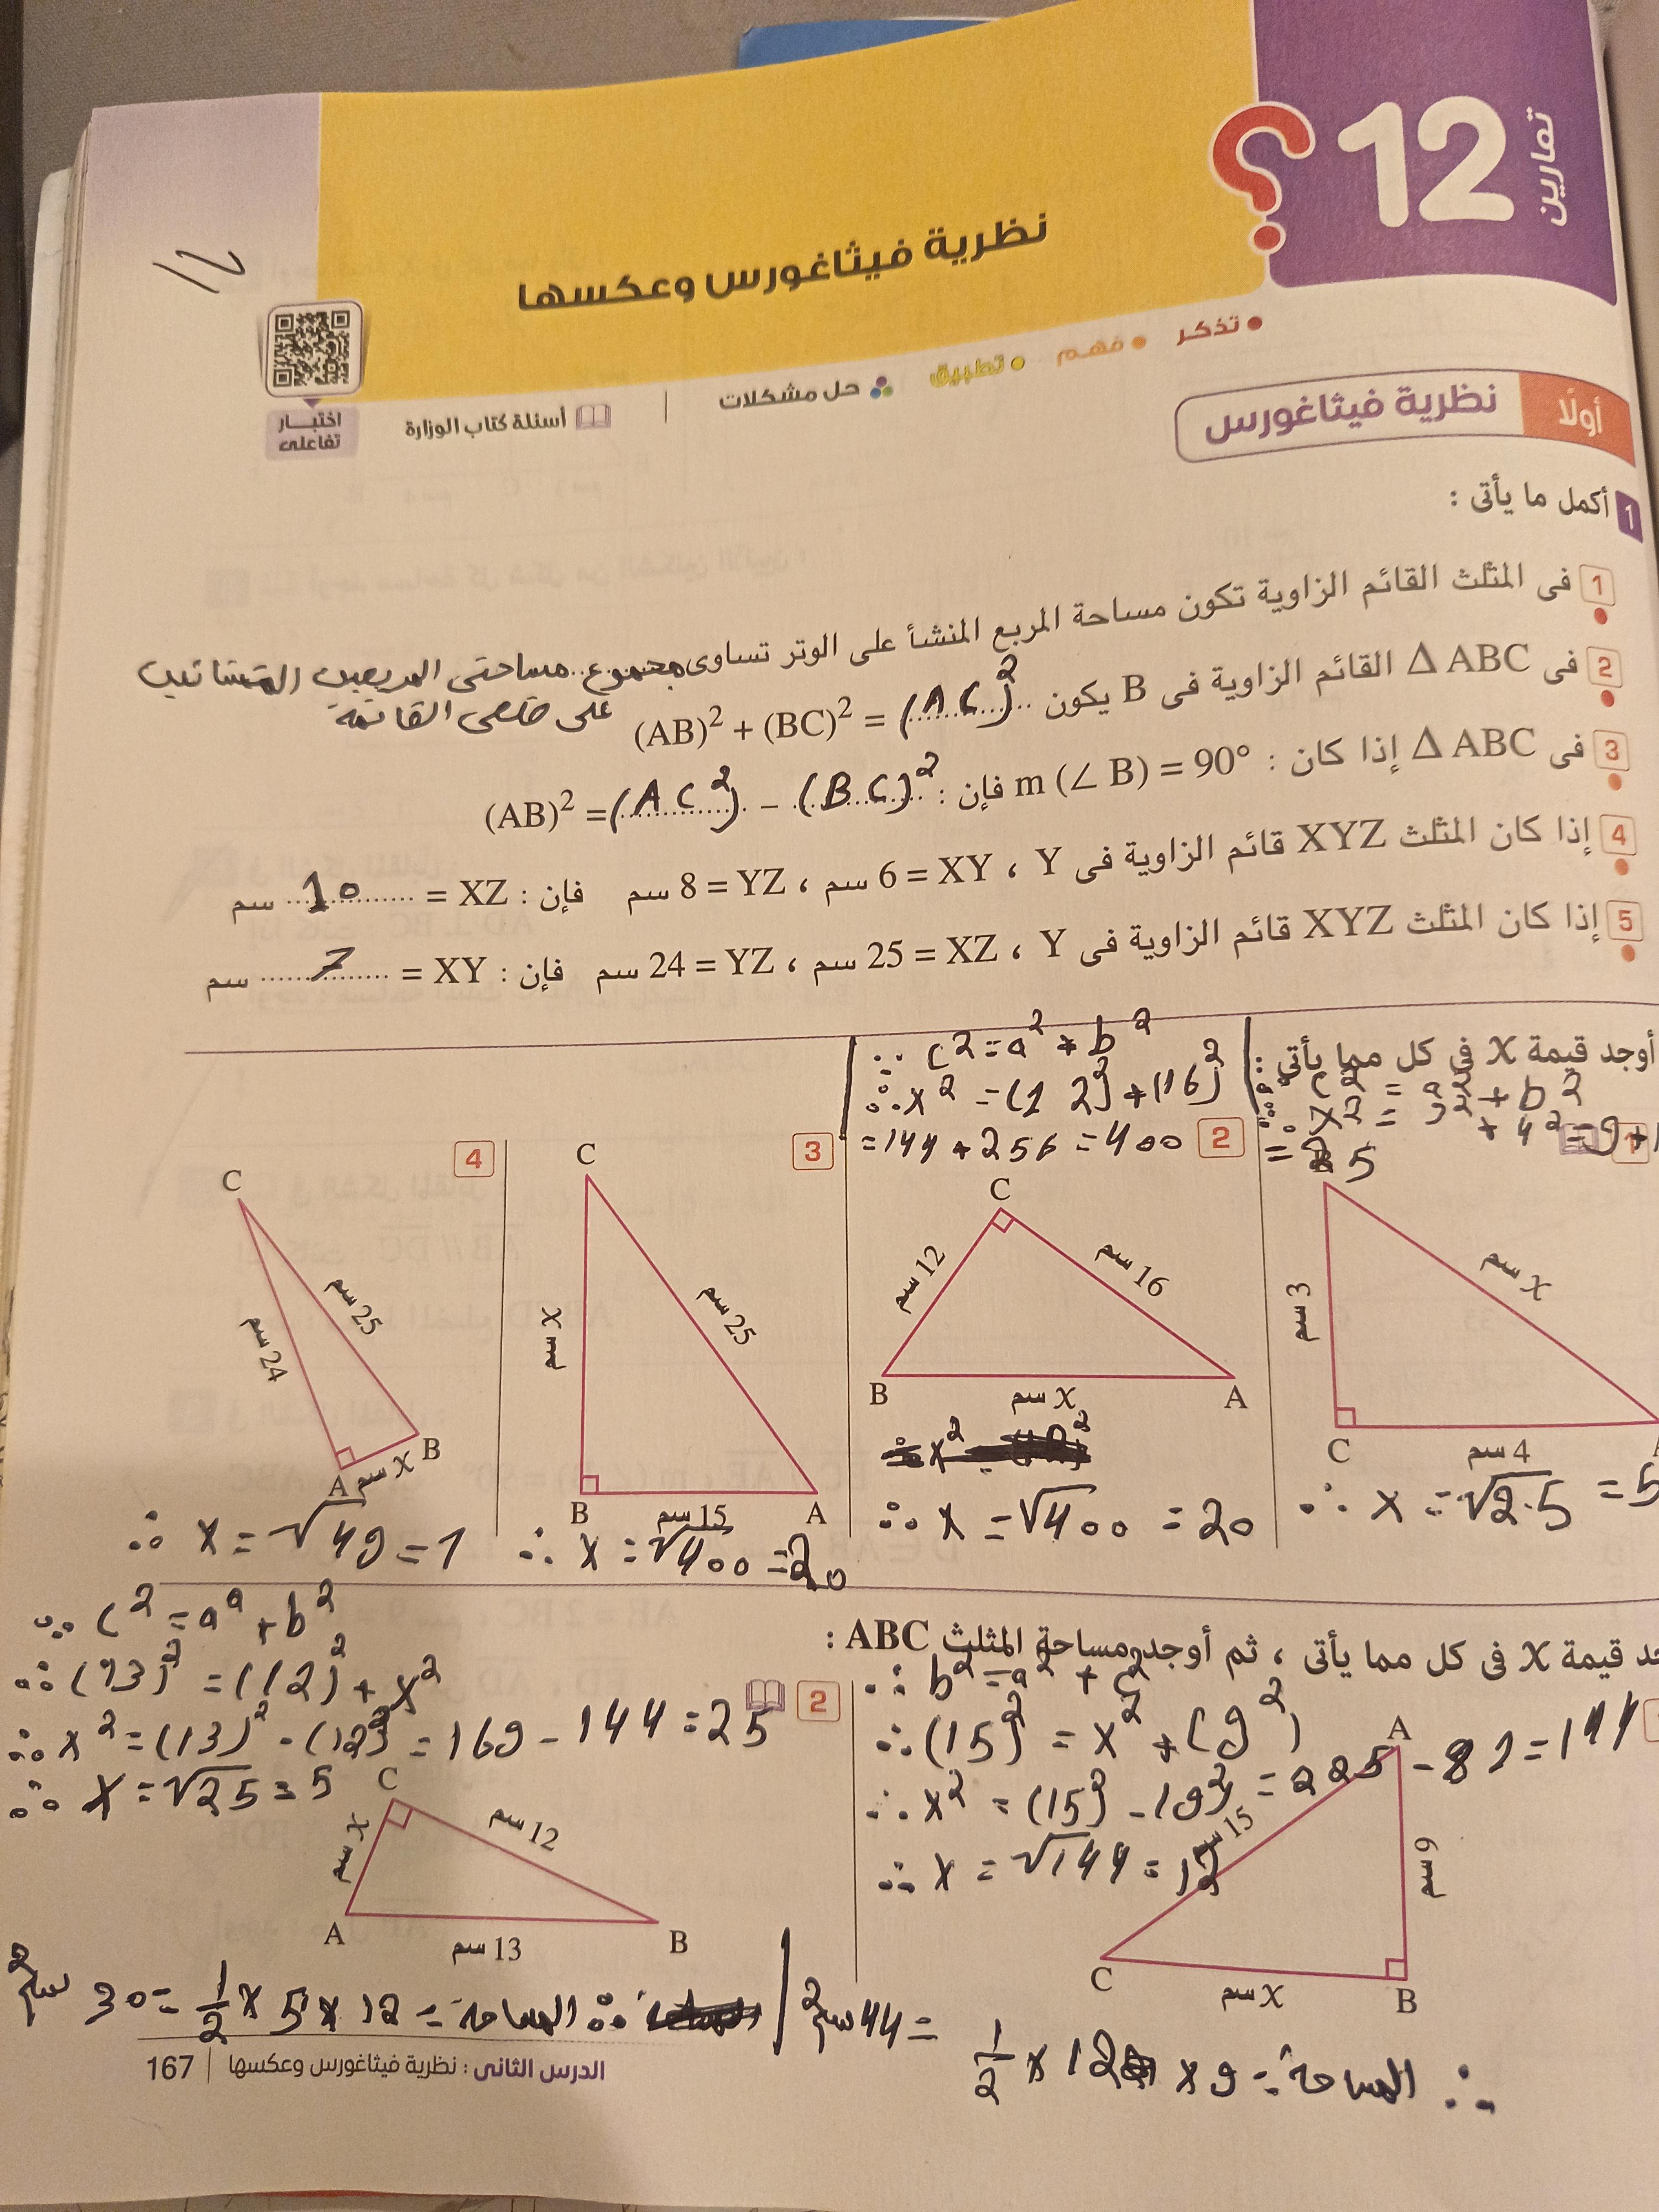 تمارين
12
؟
نظرية فيثاغورس وعكسها
• تذكر • فهم • تطبيق حل مشكلات | أسئلة كتاب الوزارة
اختبار
تفاعلى
أولًا نظرية فيثاغورس
1 أكمل ما يأتى :
1 فى المثلث القائم الزاوية تكون مساحة المربع المنشأ على الوتر تساوى مجموع مساحتى المربعين المنشائين
على ضلعى القائمة
2 فى Δ ABC القائم الزاوية فى B يكون (AB)² + (BC)² = (AC)²
3 فى Δ ABC إذا كان : m (∠ B) = 90° فإن : (AB)² = (AC²) – (BC)²
4 إذا كان المثلث XYZ قائم الزاوية فى Y ، XY = 6 سم ، YZ = 8 سم فإن : XZ = 10 سم
5 إذا كان المثلث XYZ قائم الزاوية فى Y ، XZ = 25 سم ، YZ = 24 سم فإن : XY = 7 سم
أوجد قيمة X فى كل مما يأتى :
1
3 سم
X سم
4 سم
C
∴ x = √25 = 5
∵ c² = a² + b²
∴ x² = (12)² + (16)²
= 144 + 256 = 400
2
C
12 سم
16 سم
B
X سم
A
∴ x = √400 = 20
3
C
X سم
25 سم
B
15 سم
A
∴ x = √400 = 20
4
C
25 سم
24 سم
A
X سم
B
∴ x = √49 = 7
قيمة X فى كل مما يأتى ، ثم أوجد مساحة المثلث ABC :
∵ b² = a² + c²
∴ (15)² = x² + (9²)
∴ x² = (15)² - (9)² = 225 - 81 = 144
∴ x = √144 = 12
A
15 سم
9 سم
C
X سم
B
∴ المساحة = 9 × 12 × 1/2
= 44 سم²
2
∵ c² = a² + b²
∴ (13)² = (12)² + x²
∴ x² = (13)² - (12)² = 169 - 144 = 25
∴ x = √25 = 5
C
X سم
12 سم
A
13 سم
B
∴ المساحة = 12 × 5 × 1/2 = 30 سم²
الدرس الثانى : نظرية فيثاغورس وعكسها | 167